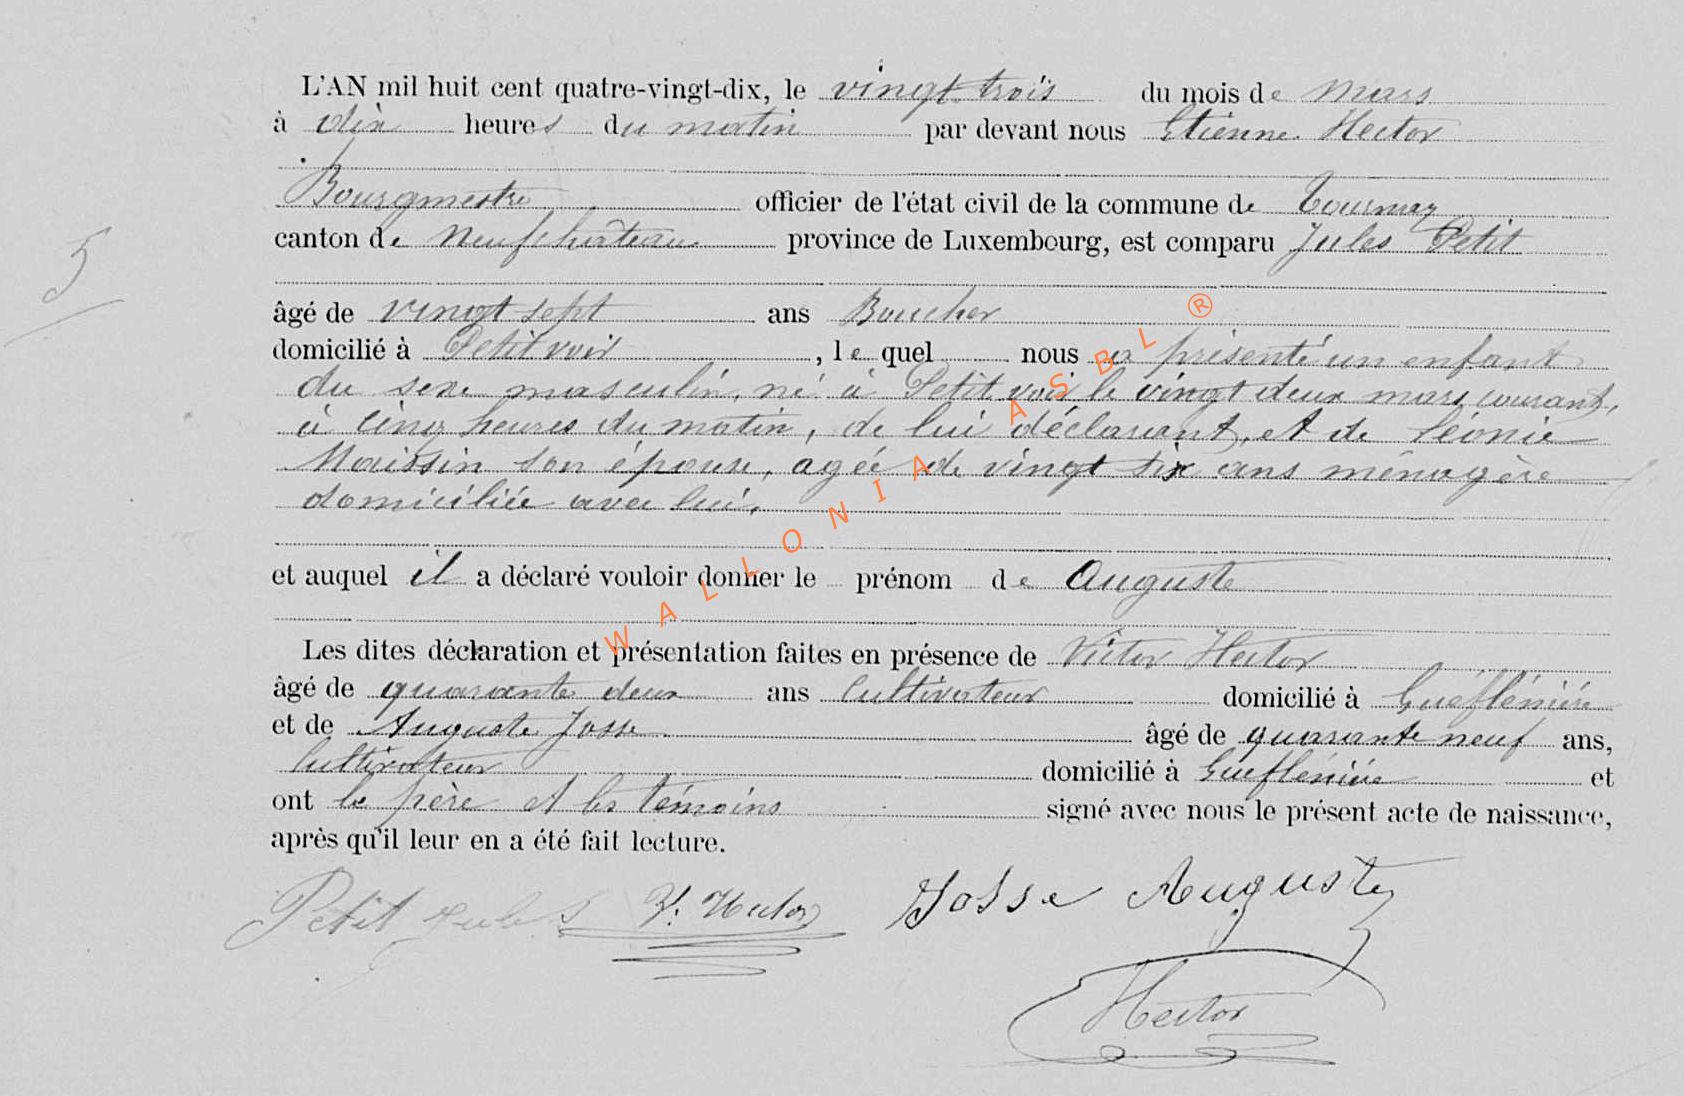 L'AN mil huit cent quatre-vingt-dix, le vingt trois du mois de mars
à dix heures du matin par devant nous Etienne Hector
Bourgmestre officier de l'état civil de la commune de Tournay
canton de Neufchâteau province de Luxembourg, est comparu Jules Petit
5
âgé de vingt sept ans Boucher
domicilié à Petitvoir, le quel nous a présenté un enfant
du sexe masculin, né à Petitvoir le vingt deux mars courant,
à cinq heures du matin, de lui déclarant, et de Léonie
Maissin son épouse, agée de vingt six ans ménagère
domiciliée avec lui.
et auquel il a déclaré vouloir donner le prénom de Auguste
Les dites déclaration et présentation faites en présence de Victor Hector
âgé de quarante deux ans Cultivateur domicilié à
et de Auguste Josse âgé de quarante neuf ans,
Cultivateur domicilié à et
ont le père et les témoins signé avec nous le présent acte de naissance,
après qu'il leur en a été fait lecture.
Petit Jules V. Hector Josse Auguste
Hector
WALLONIA ASBL ®